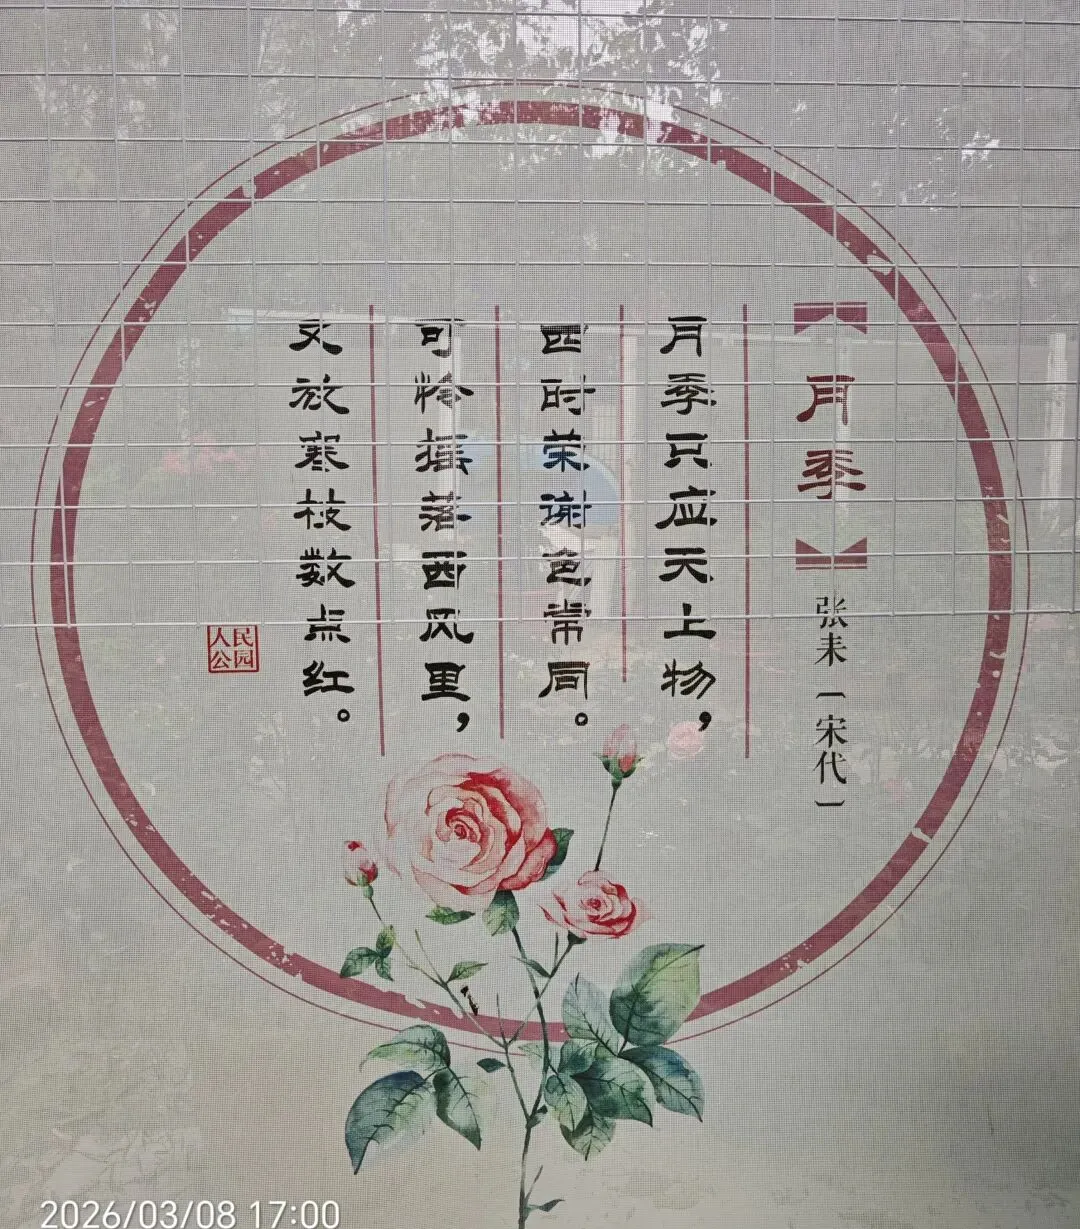 【月季】
张耒〔宋代〕
月季只应天上物，
四时荣谢色常同。
可怜摇落西风里，
又放寒枝数点红。
人民
公园
2026/03/08 17:00